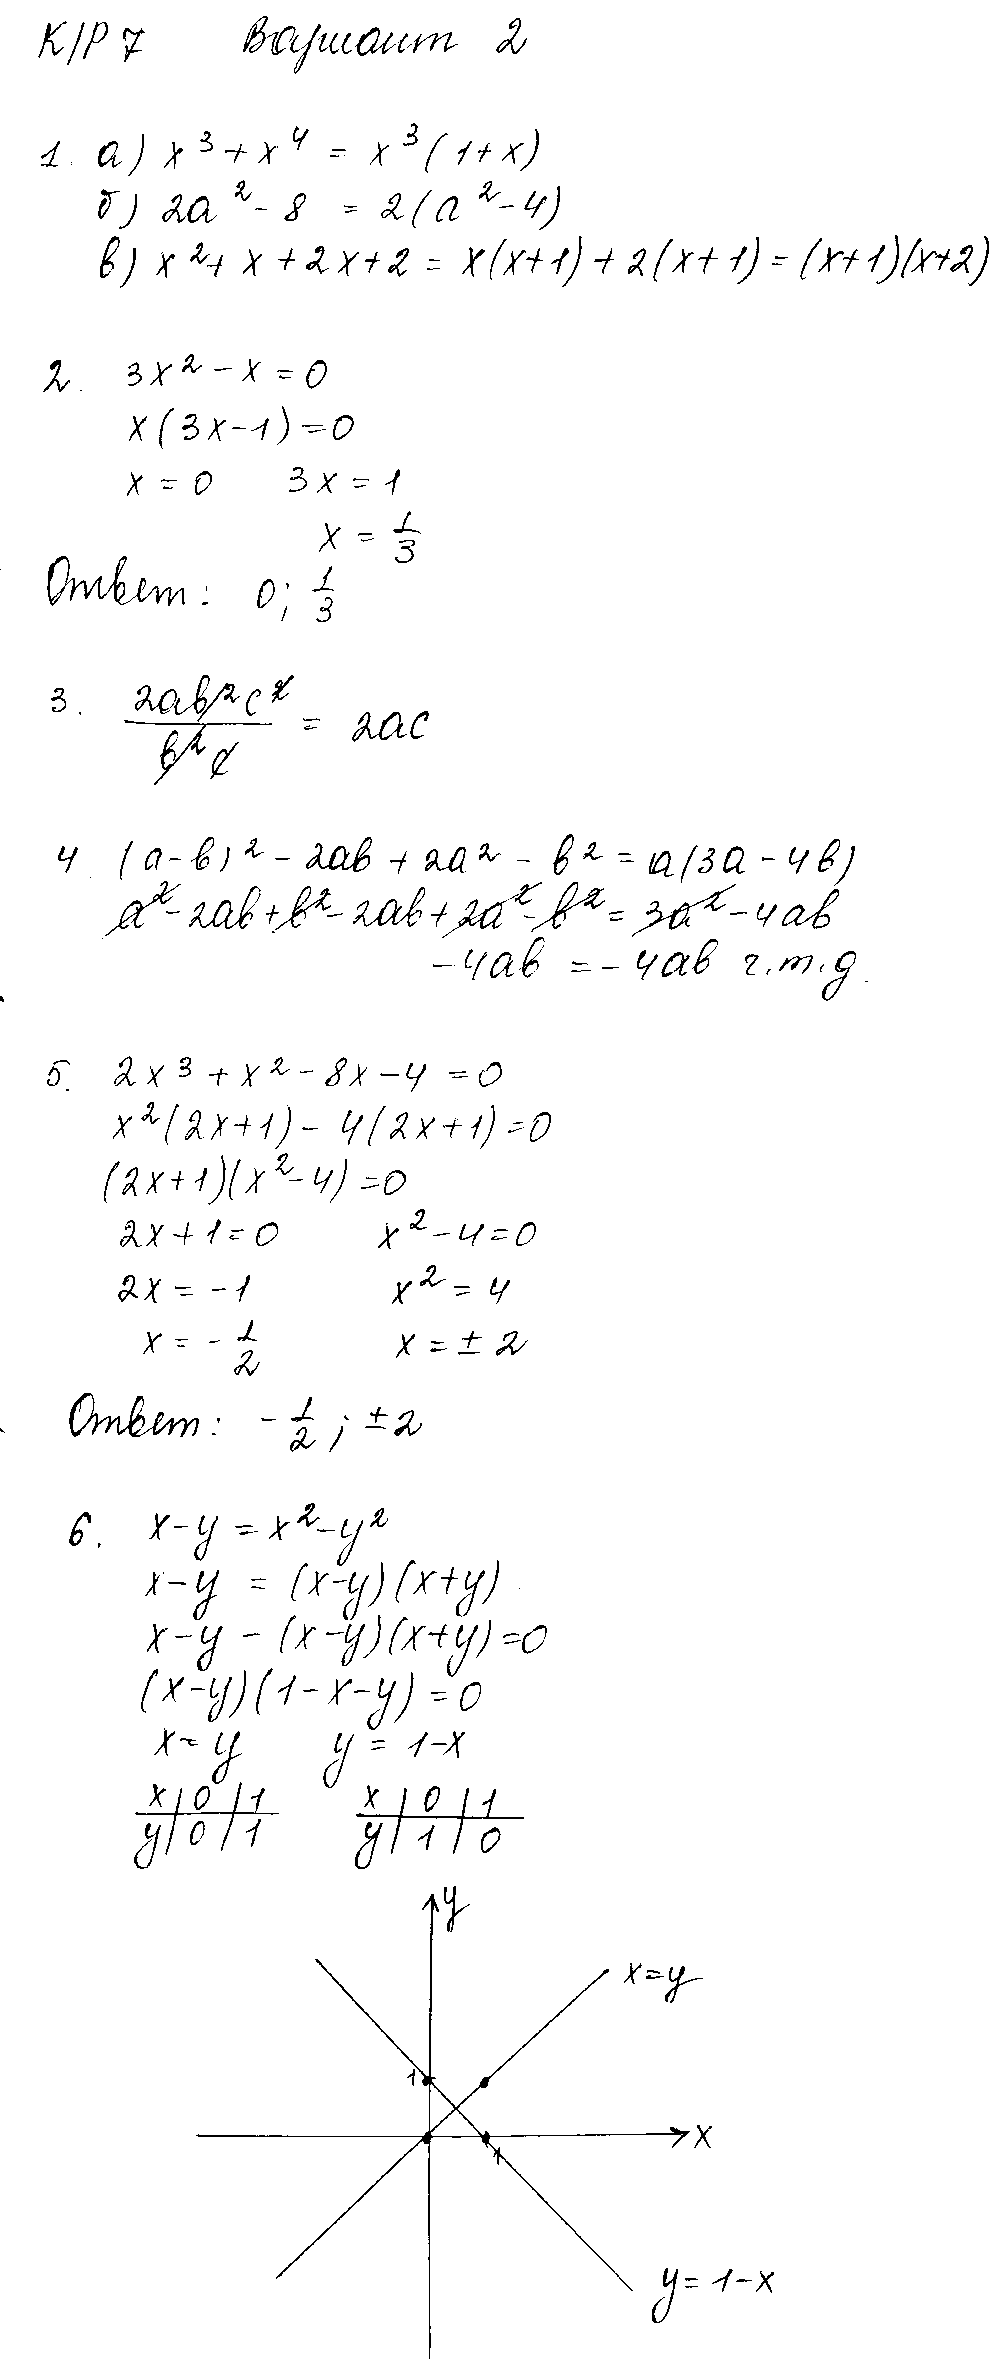 К/Р 7 Вариант 2
1. а) x³ + x⁴ = x³(1+x)
б) 2a² - 8 = 2(a² - 4)
в) x² + x + 2x + 2 = x(x+1) + 2(x+1) = (x+1)(x+2)
2. 3x² - x = 0
x(3x-1) = 0
x = 0 3x = 1
x = 1/3
Ответ: 0; 1/3
3. 2ab²c²/b²c = 2ac
4. (a-b)² - 2ab + 2a² - b² = a(3a - 4b)
a² - 2ab + b² - 2ab + 2a² - b² = 3a² - 4ab
-4ab = -4ab ч.т.д.
5. 2x³ + x² - 8x - 4 = 0
x²(2x+1) - 4(2x+1) = 0
(2x+1)(x²-4) = 0
2x + 1 = 0 x² - 4 = 0
2x = -1 x² = 4
x = -1/2 x = ± 2
Ответ: -1/2; ±2
6. x-y = x²-y²
x-y = (x-y)(x+y)
x-y - (x-y)(x+y) = 0
(x-y)(1-x-y) = 0
x = y y = 1-x
x | 0 | 1 x | 0 | 1
y | 0 | 1 y | 1 | 0
y
x=y
1
x
1
y = 1-x